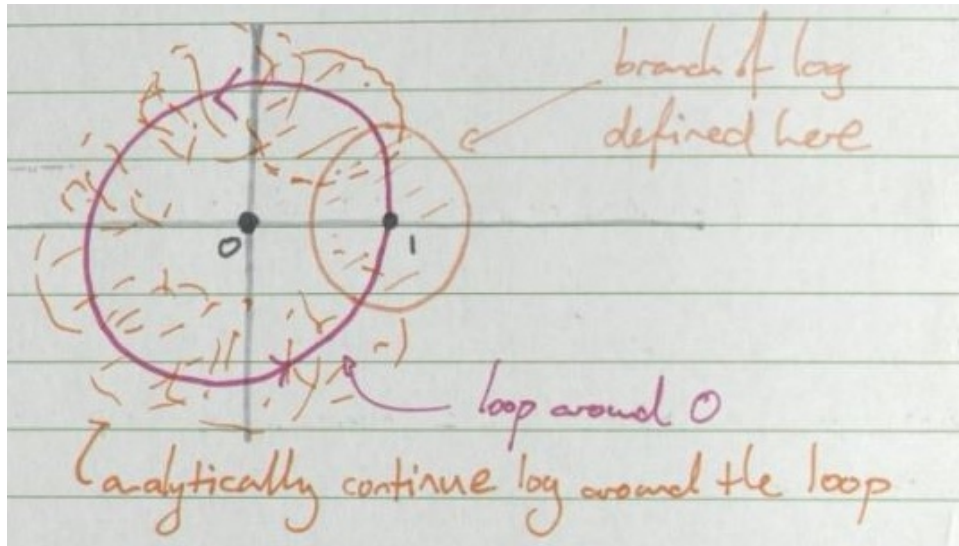 branch of log
defined here
0
1
loop around 0
analytically continue log around the loop